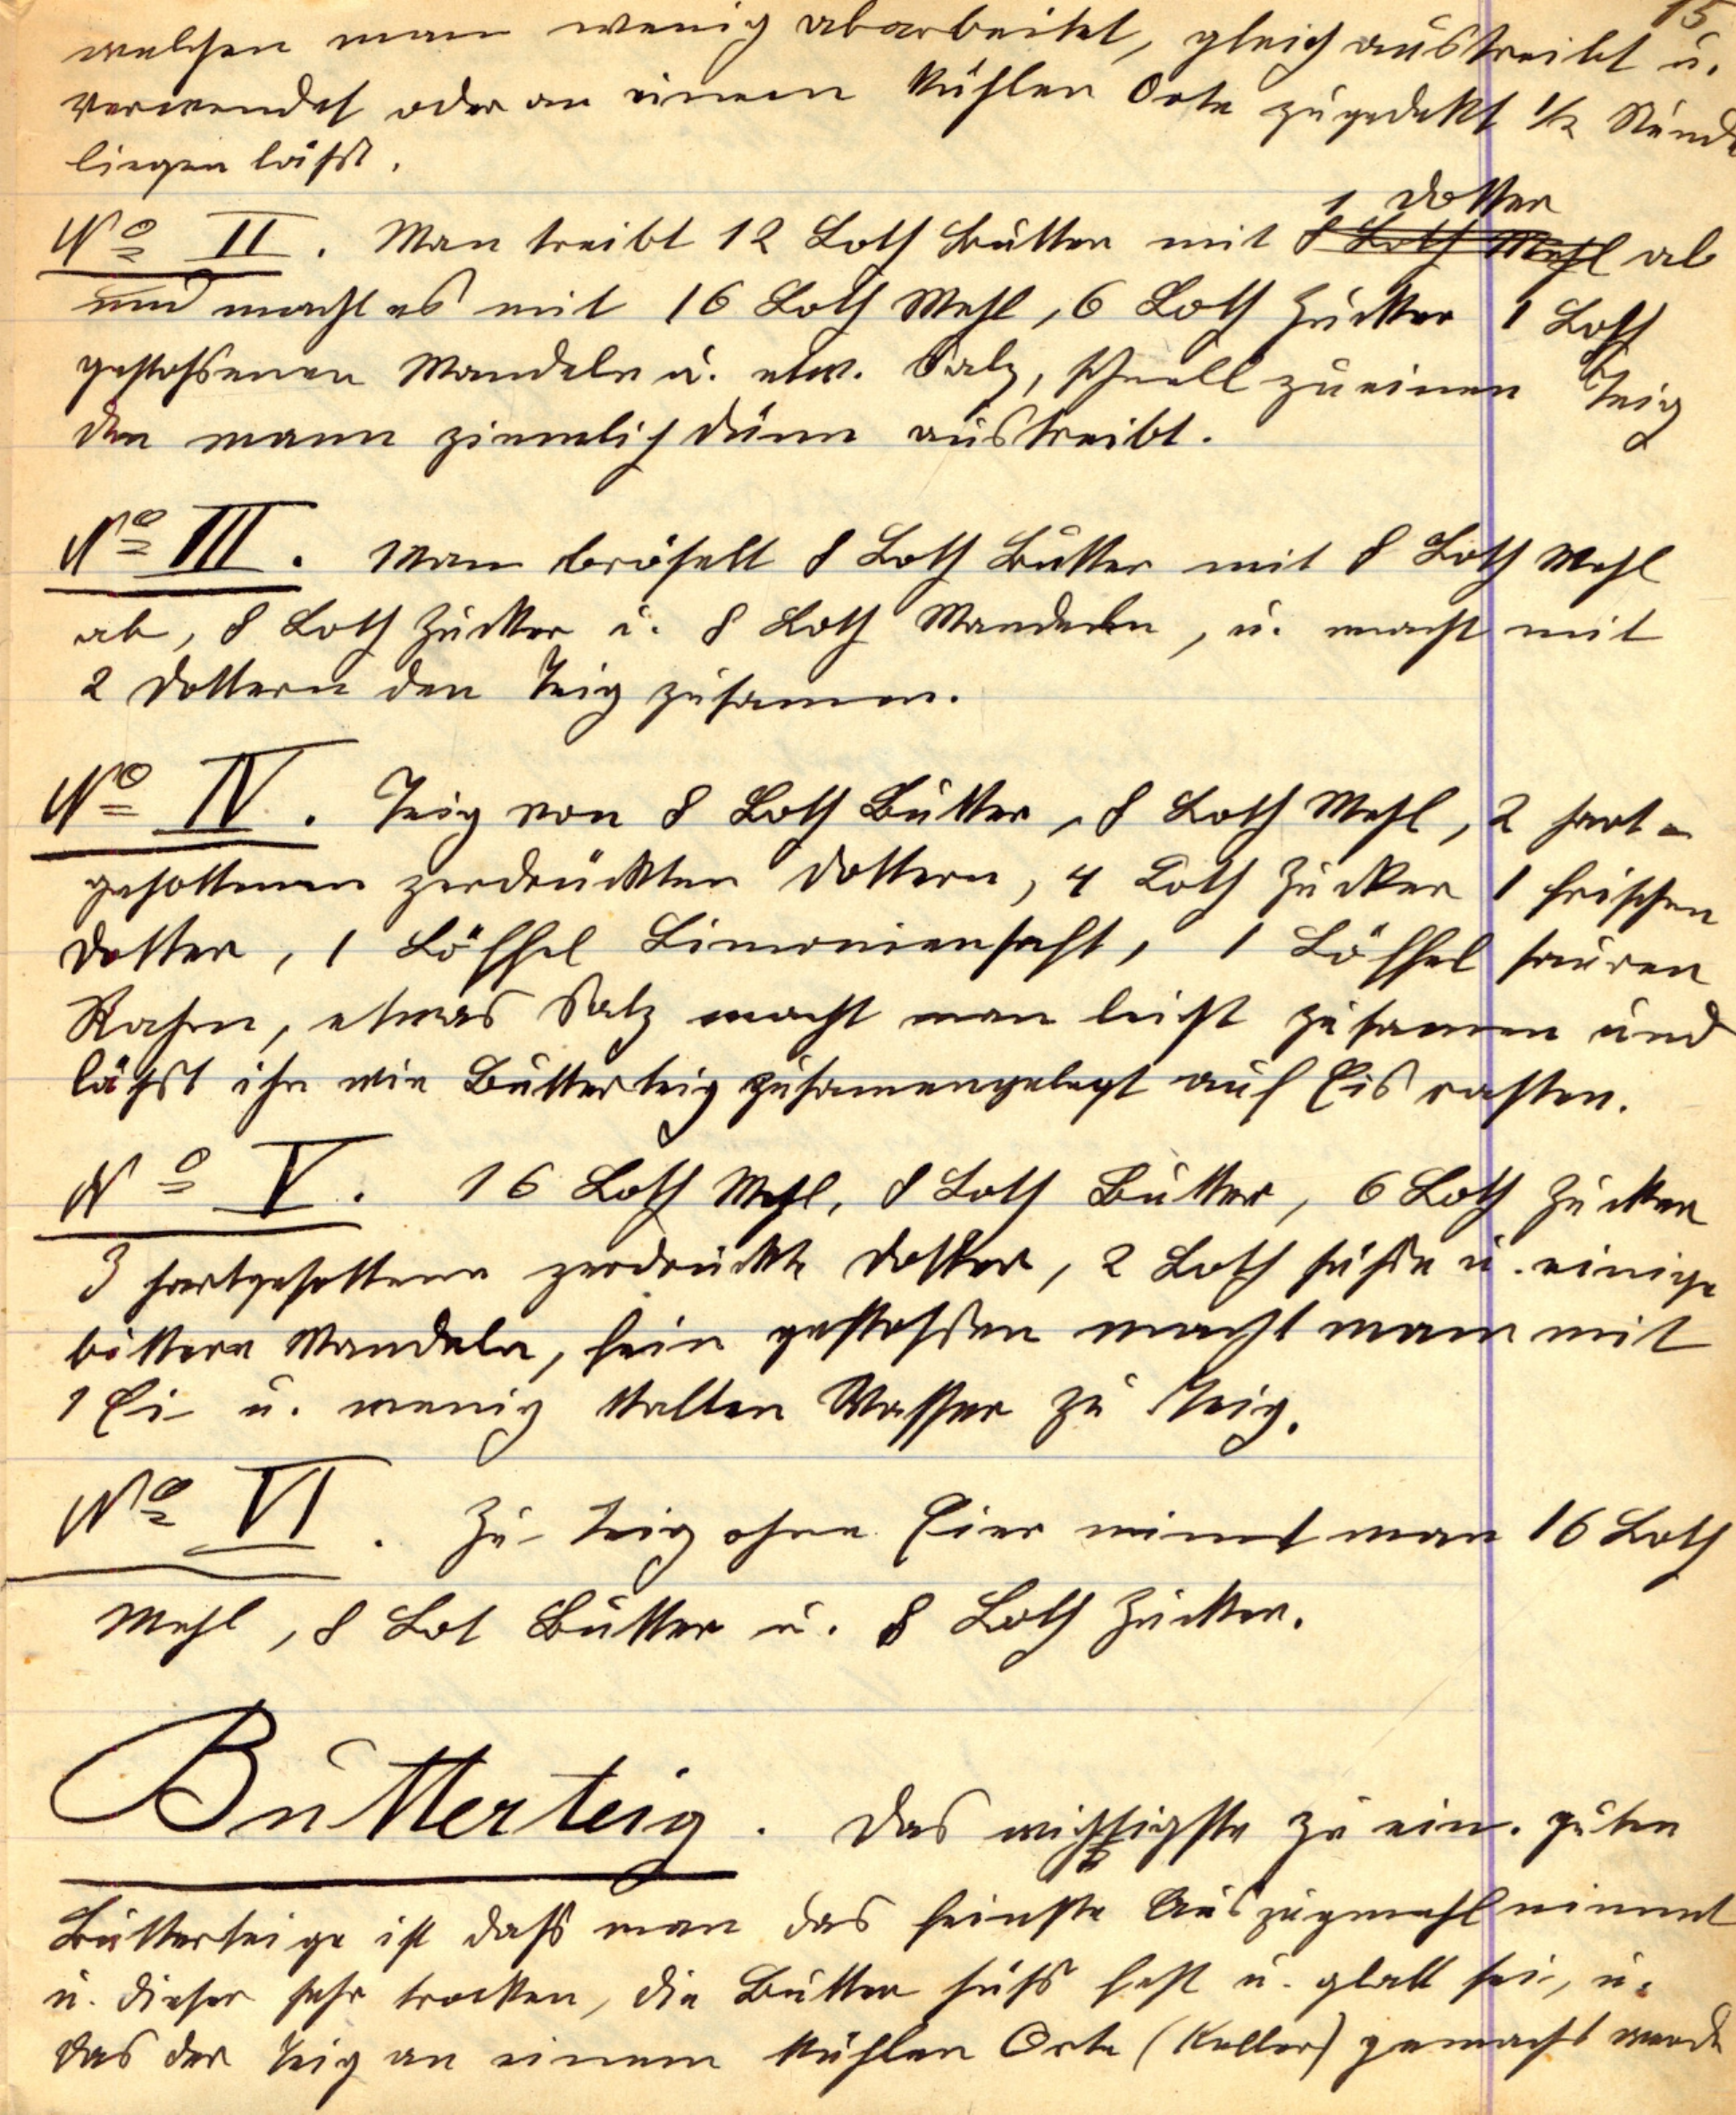 15
welchen man wenig abarbeitet, gleich austreibt u.
verwendet oder an einem kühlen Orte zugedekt 1/2 Stunde
liegen läßt.
1 Dotter
No II. Man treibt 12 Loth Butter mit 8 Loth Mehl ab
und macht es mit 16 Loth Mehl, 6 Loth Zucker 1 Loth
gestoßenen Mandeln u. etw. Salz, schnell zu einen Teig
den mann ziemlich dünn austreibt.
No III. Man bröselt 8 Loth Butter mit 8 Loth Mehl
ab, 8 Loth Zucker u. 8 Loth Mandeln, u. macht mit
2 Dottern den Teig zusamen.
No IV. Teig von 8 Loth Butter, 8 Loth Mehl, 2 hart-
gesottenen zerdrückten Dottern, 4 Loth Zucker 1 frischen
Dotter, 1 Löffel Limoniensaft, 1 Löffel sauren
Rahm, etwas Salz macht man leicht zusamen und
läßt ihn wie Butterteig zusamengelegt auf Eis rasten.
No V. 16 Loth Mehl, 8 Loth Butter, 6 Loth Zucker
3 hartgesottene zerdrückte Dotter, 2 Loth süße u. einige
bittere Mandeln, fein gestoßen macht mann mit
1 Ei u. wenig kalten Wasser zu Teig.
No VI. Zu Teig ohne Eier nimmt man 16 Loth
Mehl, 8 Lot Butter u. 8 Loth Zucker.
Butterteig. Das wichtigste zu ein. guten
Butterteige ist daß man das feinste Auszugmehl nimmt
u. dieser sehr trocken, die Butter süß fest u. glatt sei, u.
das der Teig an einem kühlen Orte (Keller) gemacht werde